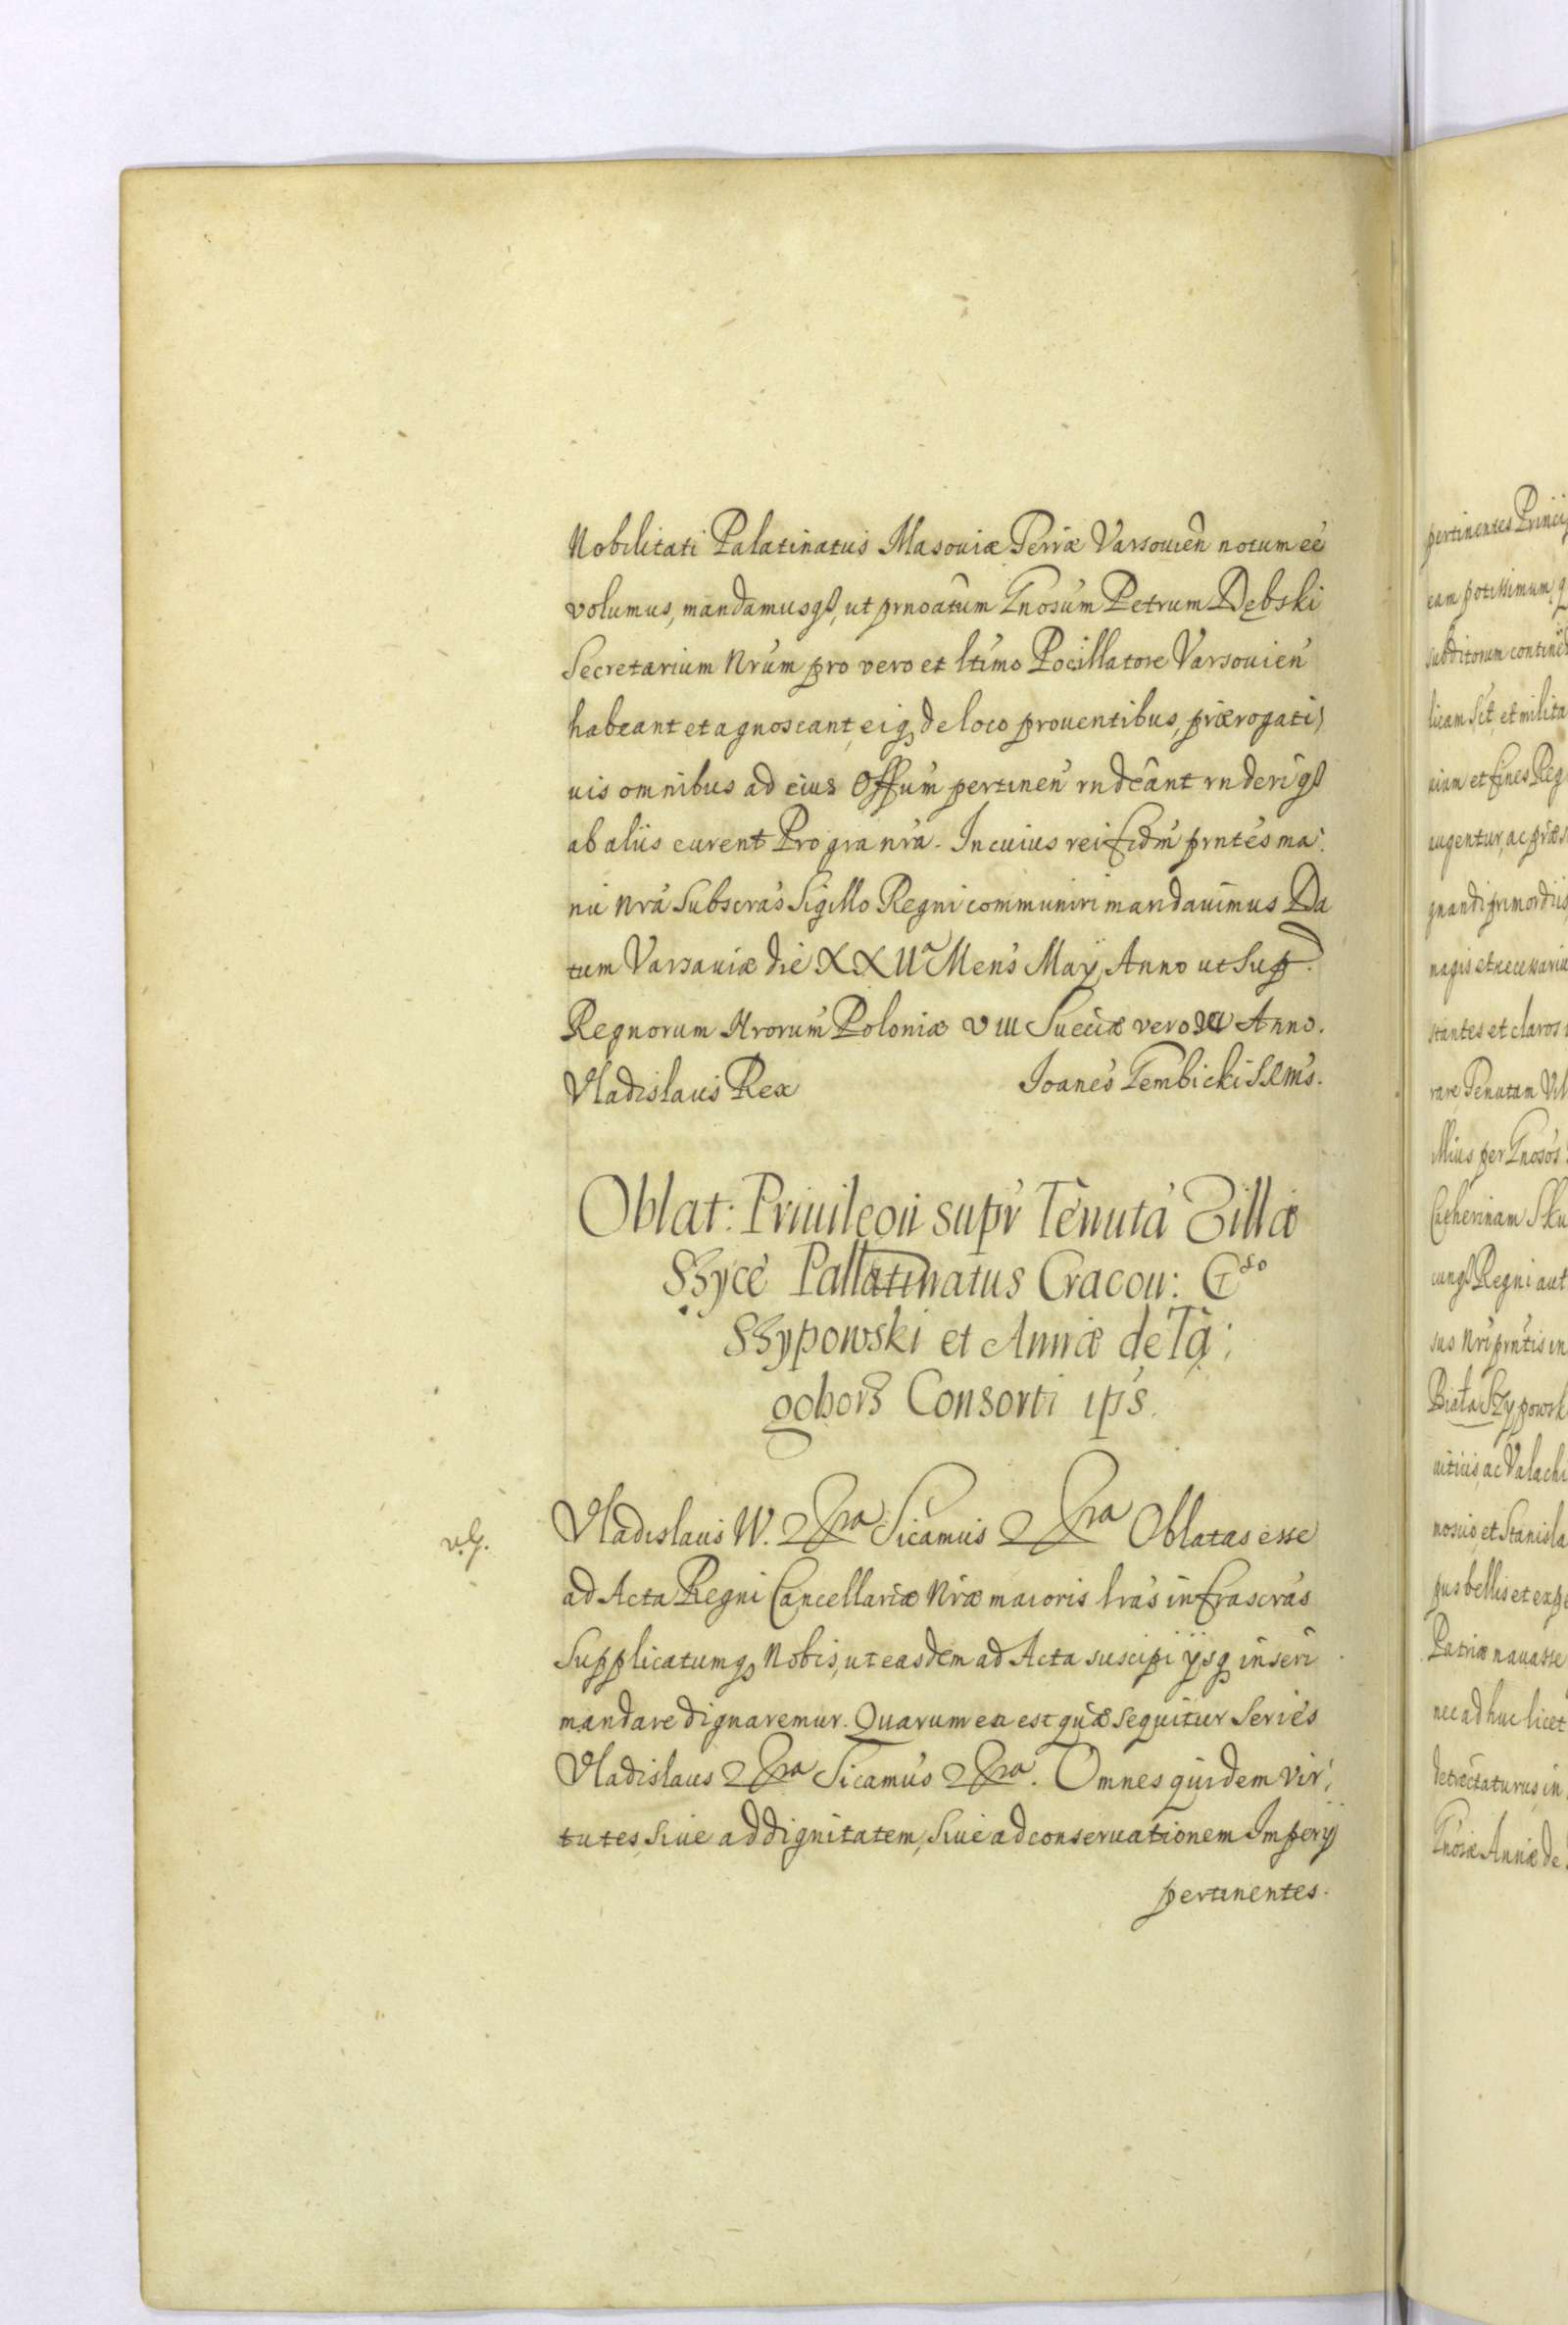 Nobilitati Palatinatus Masouiæ Terræ Varsouien̄ notum eē
volumus, mandamusqȝ, ut prnōatum Gnosum Petrum Dębski
Secretarium Nrūm pro vero et ltīmo Pocillatore Varsouień
habeant et agnoscant, eiqȝ de loco prouentibus, prærogati
uis omnibus ad eius Offūm pertineń rndeânt rnderiqȝ
ab aliis curent Pro gra nrā. In cuius rei fidm̄ prntes ma:
nu Nrā Subscras Sigillo Regni communiri mandauimus Da
tum Varsauiæ die XXIIa Mens May Anno ut Sup.
Regnorum Nrorum Poloniæ VIII Sueciæ vero Anno.
Vladislaus Rex Joanes Gembicki SRMs.
Oblat: Priuilegii supr Tenuta Villæ
Szyce Pallatinatus Cracou: Gso
Szypowski et Annæ de Tą:
goborz Consorti ips.
Vladislaus IV. Sicamus Oblatas esse
ad Acta Regni Cancellariæ Nræ maioris lras infrascras
Supplicatumqȝ Nobis, ut easdem ad Acta suscipi ysqȝ inseri
mandare dignaremur. Quarum ea est quæ sequitur Series
Vladislaus Sicamus. Omnes quidem vir:
tutes, siue ad dignitatem, siue ad conseruationem Impery
pertinentes.
pertinentes Princi
eam potissimum q
subditorum contine
licam sit, et milita
uiam et fines Reg
augentur, ac præs
gnandi primordiis
magis et necessaria
stantes et claros
rare Tenutam Vil
llius per Gnosos
Catherinam Sku
cunqȝ Regni aut
sus Nri prntis in
Biała Szypowsk
uitiis, ac Valachi
mosuio, et Stanisla
pus bellis et exp
Patriæ nauasse
nec adhuc licet
detrectaturus in
Gnosæ Annæ de